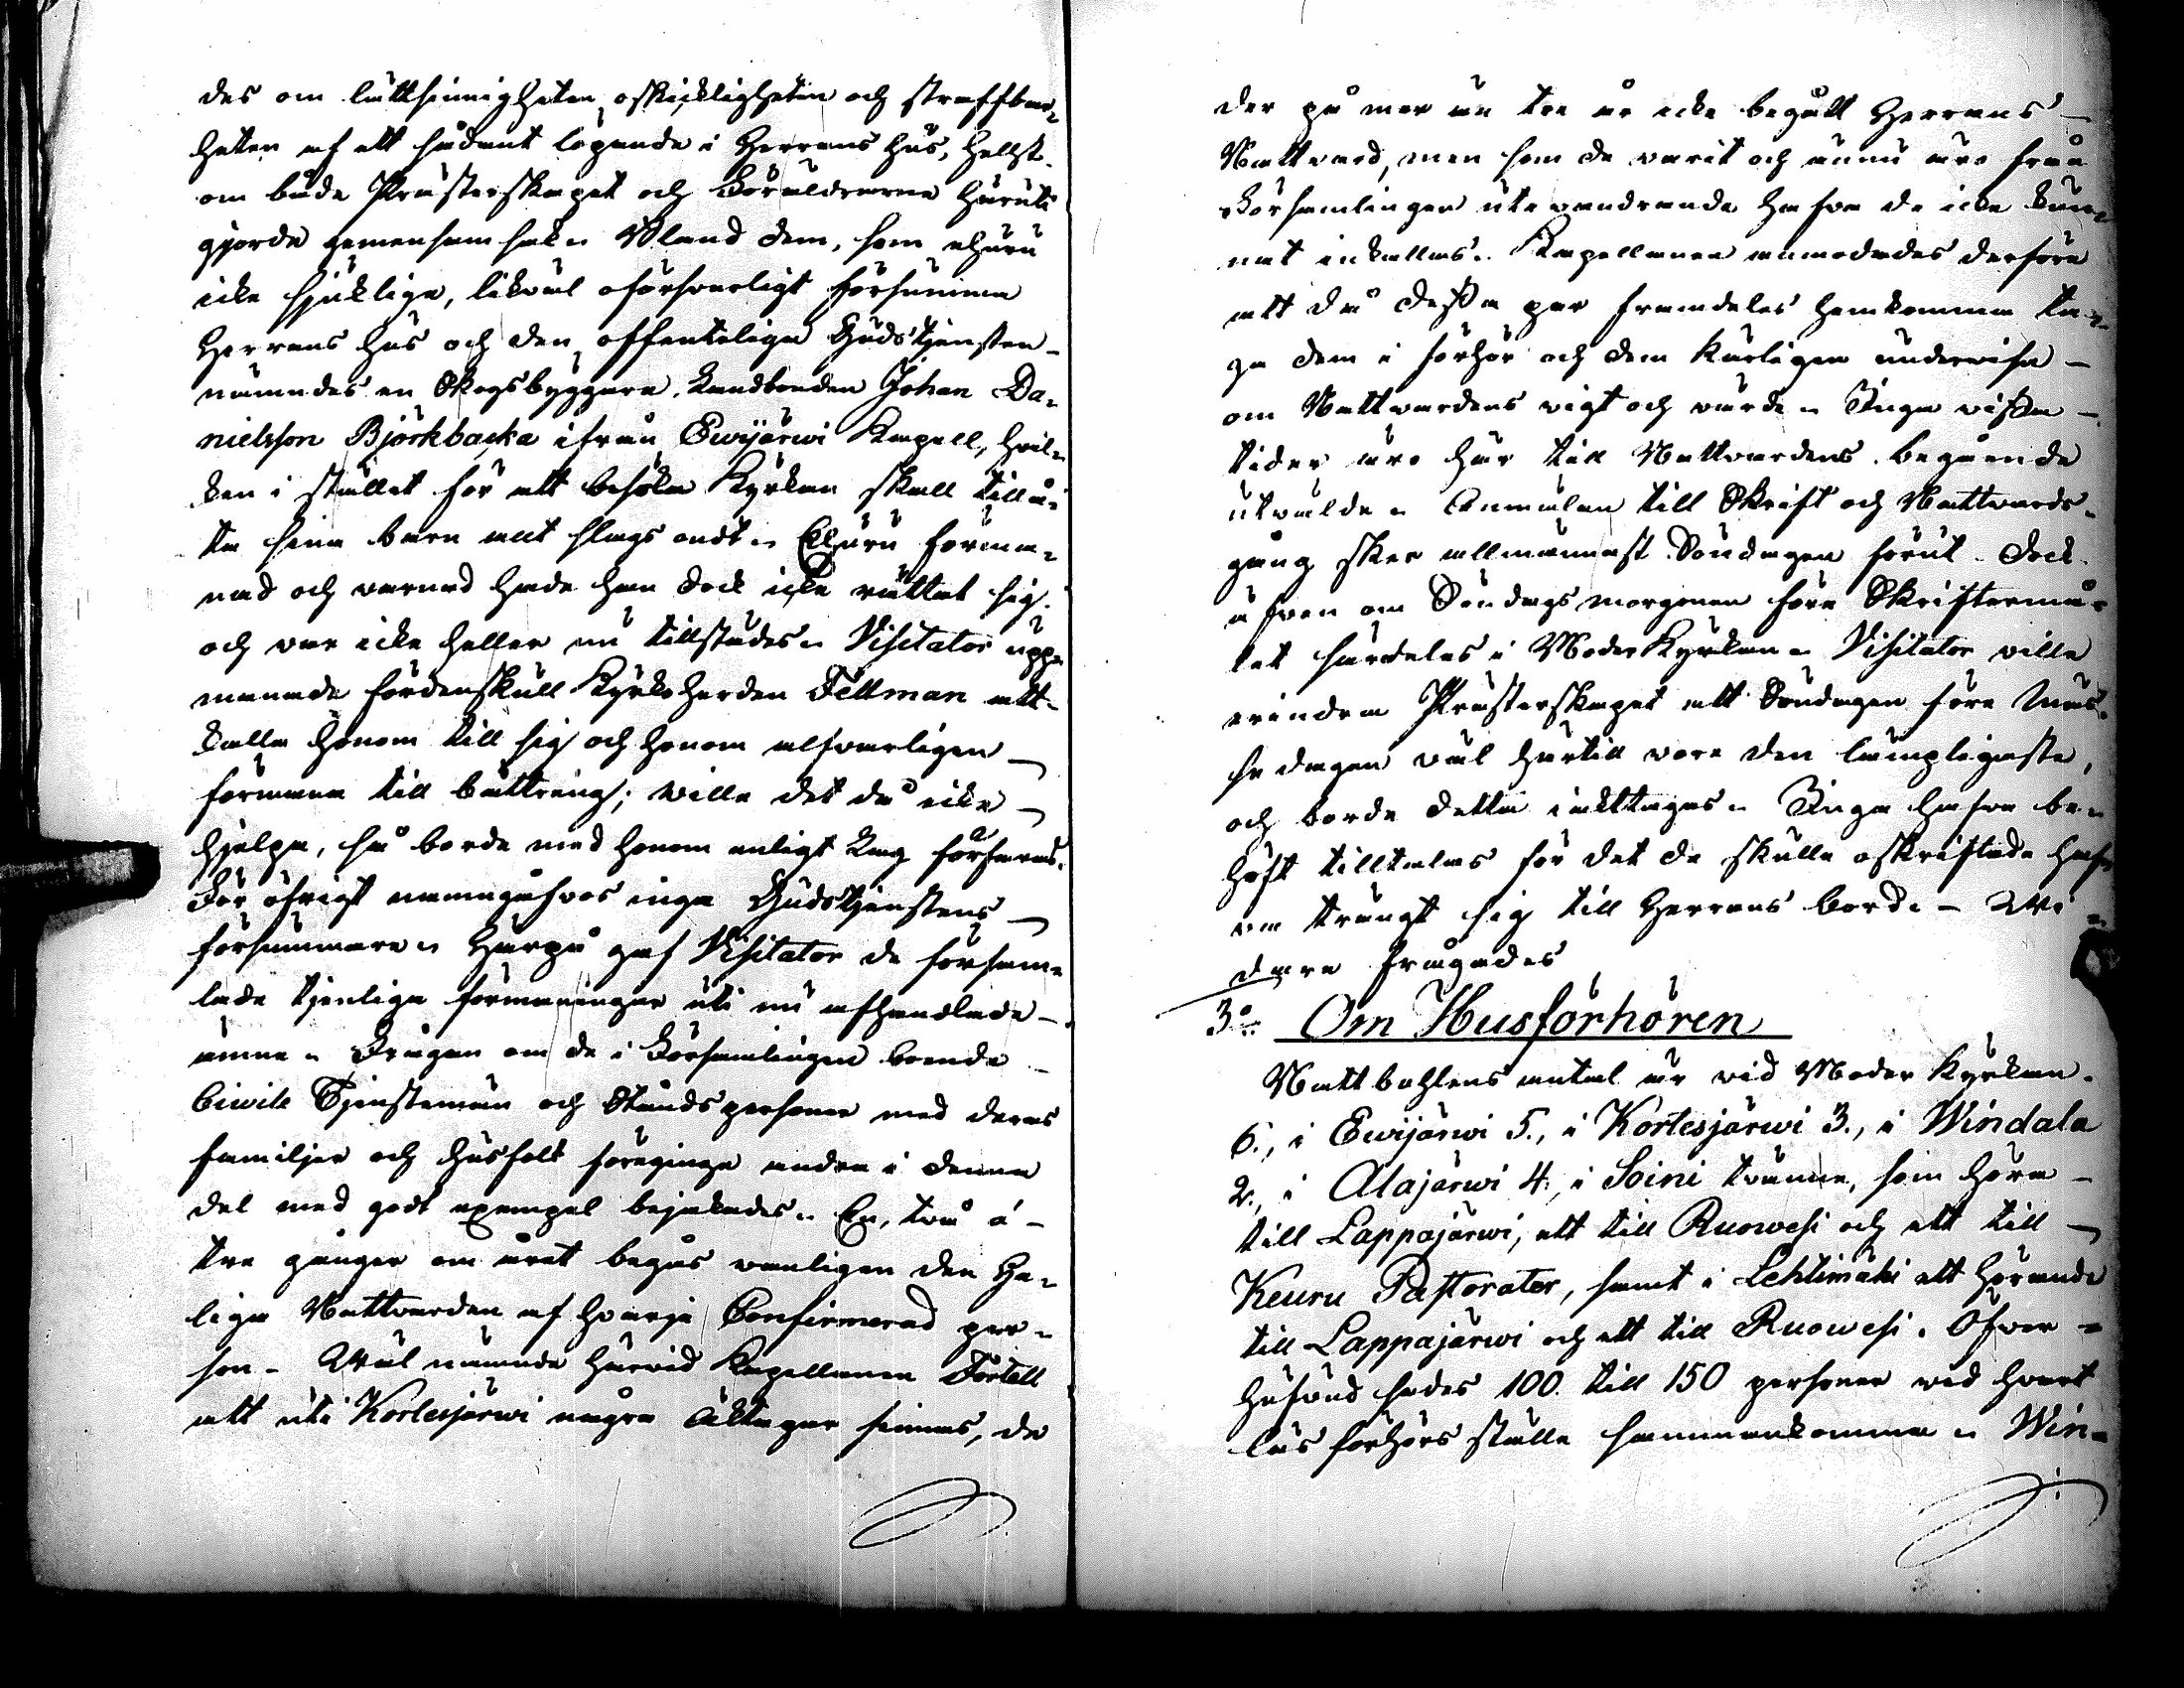 des om lättsinnigheten, oskickligheten och straffbar-
heten af ett sådant löpande i Herrans hus, hellst
om både Prästerskapet och Föräldrarne häruti
gjorde gemensam sak. Bland dem, som ehuru
icke sjuklige, likväl oförsvarligt försumma
Herrans hus och den offentelige Gudstjensten
nämndes en Skogsbyggare, Landbonden Johan Da-
nielsson Björkbacka ifrån Ewijärwi Kapell, hvil-
ken i stället för att besöka Kyrkan skall tillå-
ta sina barn allt slags ondt. Ehuru förma-
nad och varnad hade han dock icke rättat sig
och var icke heller nu tillstädes. Visitator upp-
manade fördenskull Kyrkoherden Fellman att
kalla honom till sig och honom alfvarligen
förmana till bättring; wille det då icke
hjelpa, så borde med honom enligt Lag förfaras.
För öfrigt namngåfvos inga Gudstjenstens
försummare. Härpå gaf Visitator de försam-
lade tjenliga förmaningar uti nu afhandlade
ämne. Frågan om de i Församlingen boende
Civile Tjenstemän och Ståndspersoner med deras
familjer och husfolk föregingo andra i denna
del med godt exempel bejakades. En, två á
tre gånger om året begås wanligen den He-
liga Nattvarden af hvarje Confirmerad per-
son. Wäl nämnde härvid Kapellanen Förtell
att uti Kortesjärwi några Äktapar finnas, de
der på mer än tre år icke begått Herrans
Nattvard, men som de varit och ännu äro från
Församlingen utevandrande hafva de icke kun-
nat inkallas. Kapellanen anmodades derföre
att då dessa par framdeles hemkomma ta-
ga dem i förhör och dem kärligen underwisa
om Nattvardens vigt och värde. Inga wissa
tider äro här till Nattvardens begående
utvalde. Anmälan till Skrift och Nattvards-
gång sker allmännast Söndagen förut dock
äfven om Söndags morgonen före Skriftermå-
let särdeles i Moder Kyrkan. Visitator ville
erindra Prästerskapet att Söndagen före Mäs-
so dagen väl härtill vore den lämpligaste,
och borde detta iakttagas. Inga hafva be-
höft tilltalas för det de skulle oskriftade haf-
va trängt sig till Herrans bord. - Wi-
dare frågades
3:o Om Husförhören
Matt bohlens antal är vid Moder Kyrkan
6., i Ewijärwi 5., i Kortesjärwi 3., i Windala
2., i Alajärwi 4., i Soini tvänne, som höra
till Lappajärwi, ett till Ruowesi och ett till
Keuru Pastorater, samt i Lehtimäki ett hörande
till Lappajärwi och ett till Ruowesi. Öfver
hufvud sades 100 till 150 personer wid hvart
läsförhörs ställe sammankomma. Win-